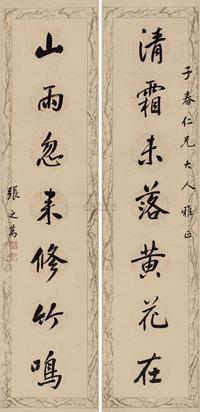 子春仁兄大人雅正
清霜未落黄花在
山雨忽来修竹鳴
張之萬